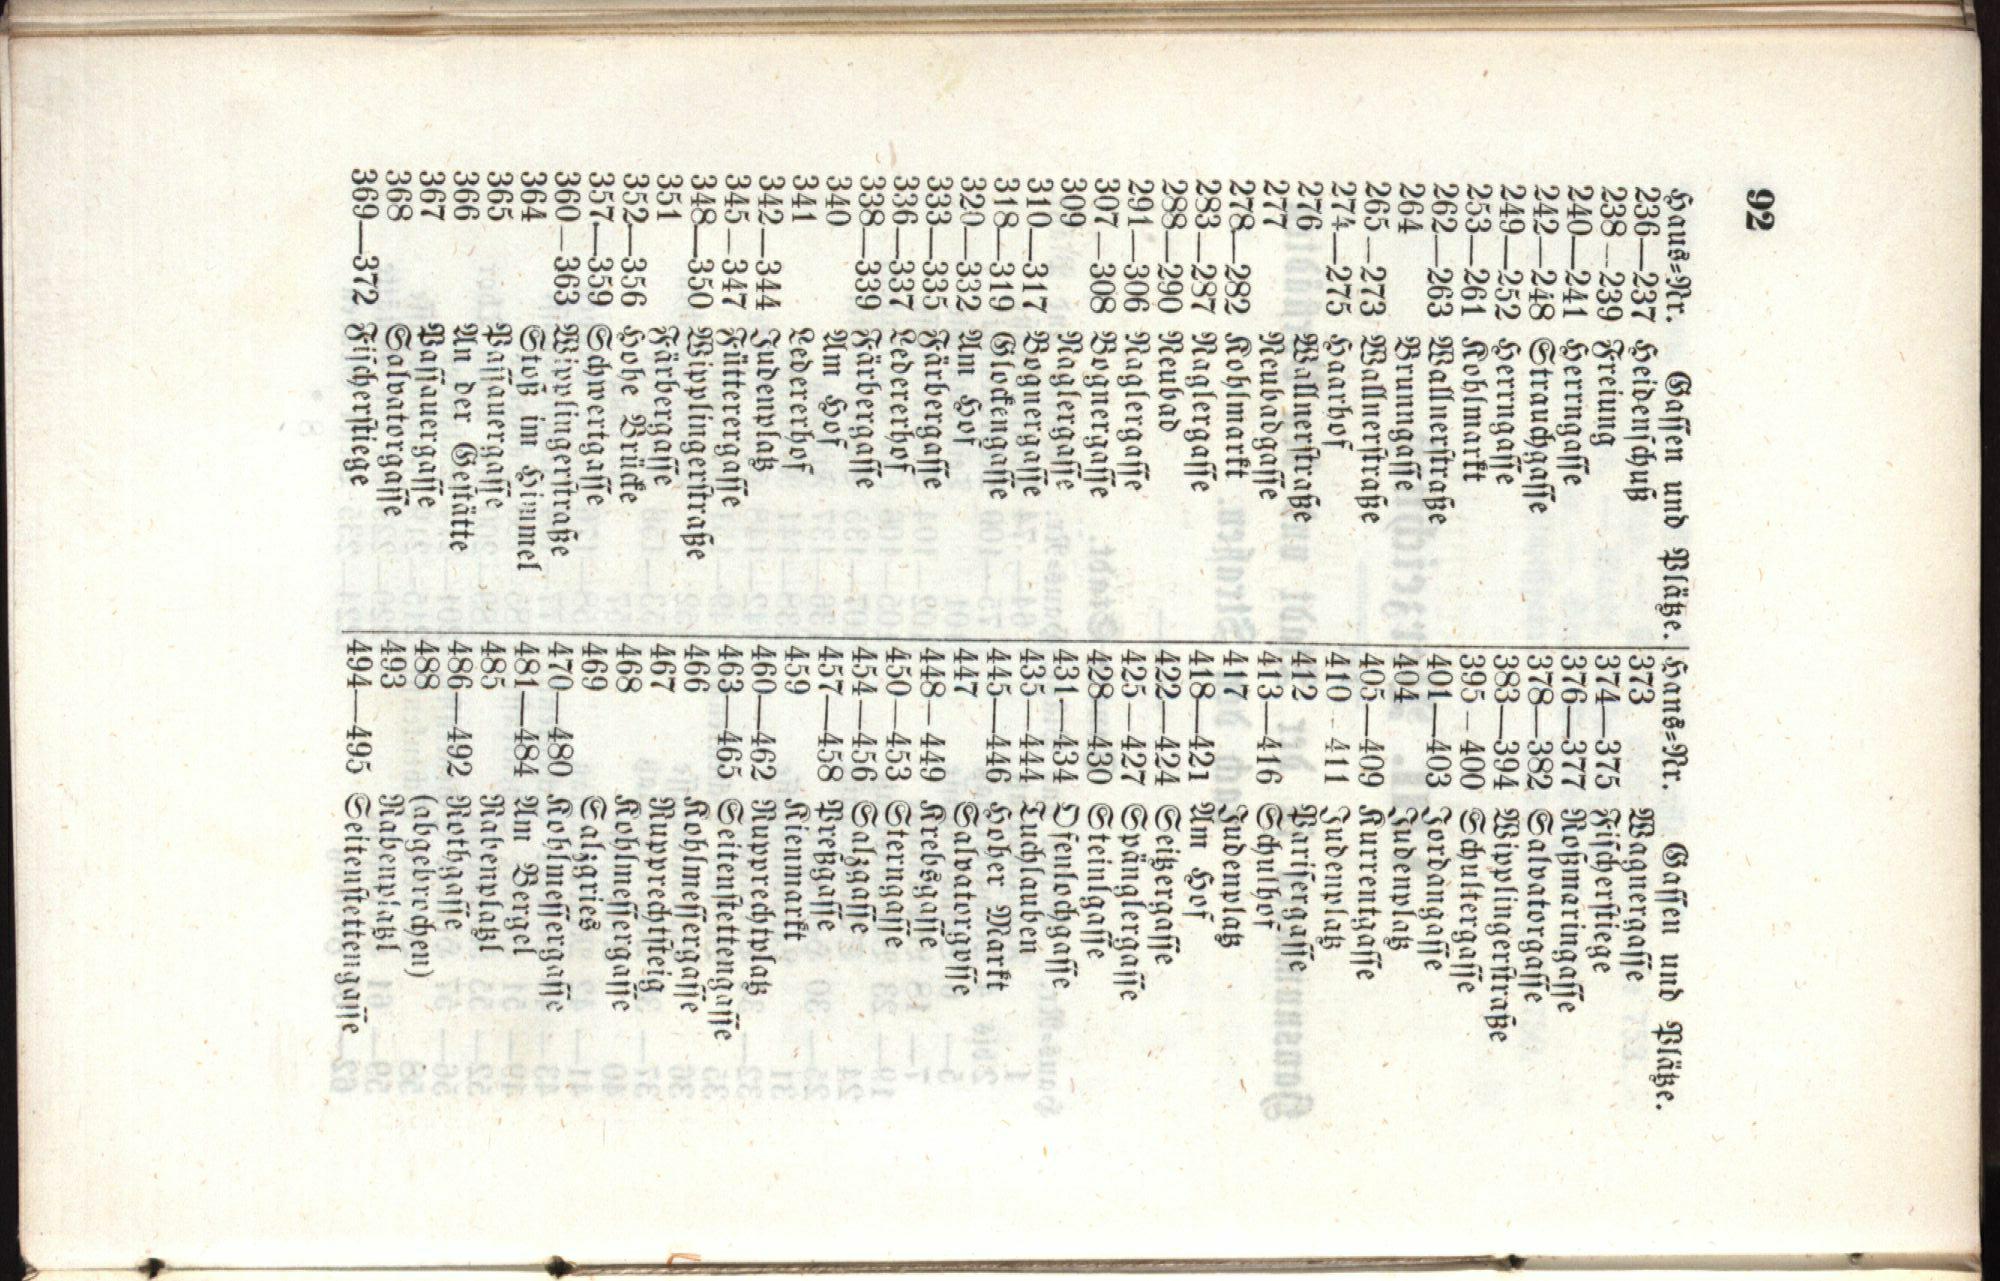 92
Haus=Nr. Gassen und Plätze.
236—237 Heidenschuß
238—239 Freiung
240—241 Herrngasse
242—248 Strauchgasse
249—252 Herrngasse
253—261 Kohlmarkt
262—263 Wallnerstraße
264 Brunngasse
265—273 Wallnerstraße
274—275 Haarhof
276 Wallnerstraße
277 Neubadgasse
278—282 Kohlmarkt
283—287 Naglergasse
288—290 Neubad
291—306 Naglergasse
307—308 Bognergasse
309 Naglergasse
310—317 Bognergasse
318—319 Glockengasse
320—332 Am Hof
333—335 Färbergasse
336—337 Ledererhof
338—339 Färbergasse
340 Am Hof
341 Ledererhof
342—344 Judenplatz
345—347 Füttterergasse
348—350 Wipplingerstraße
351 Färbergasse
352—356 Hohe Brücke
357—359 Schwertgasse
360—363 Wipplingerstraße
364 Stoß im Himmel
365 Passauergasse
366 An der Gestätte
367 Passauergasse
368 Salvatorgasse
369—372 Fischerstiege
Haus=Nr. Gassen und Plätze.
373 Wagnergasse
374—375 Fischerstiege
376—377 Roßmaringasse
378—382 Salvatorgasse
383—394 Wipplingerstraße
395—400 Schultergasse
401—403 Jordangasse
404 Judenplatz
405—409 Kurrentgasse
410—411 Judenplatz
412 Parisergasse
413—416 Schulhof
417 Judenplatz
418—421 Am Hof
422—424 Seitzergasse
425—427 Spänglergasse
428—430 Steinlgasse
431—434 Ofenlochgasse
435—444 Tuchlauben
445—446 Hoher Markt
447 Salvatorgasse
448—449 Krebsgasse
450—453 Sterngasse
454—456 Salzgasse
457—458 Preßgasse
459 Kienmarkt
460—462 Rupprechtplatz
463—465 Seitenstettengasse
466 Kohlmessergasse
467 Rupprechtsteig
468 Kohlmessergasse
469 Salzgries
470—480 Kohlmessergasse
481—484 Am Bergel
485 Rabenplatzl
486—492 Rothgasse
488 (abgebrochen)
493 Rabenplatzl
494—495 Seitenstettengasse